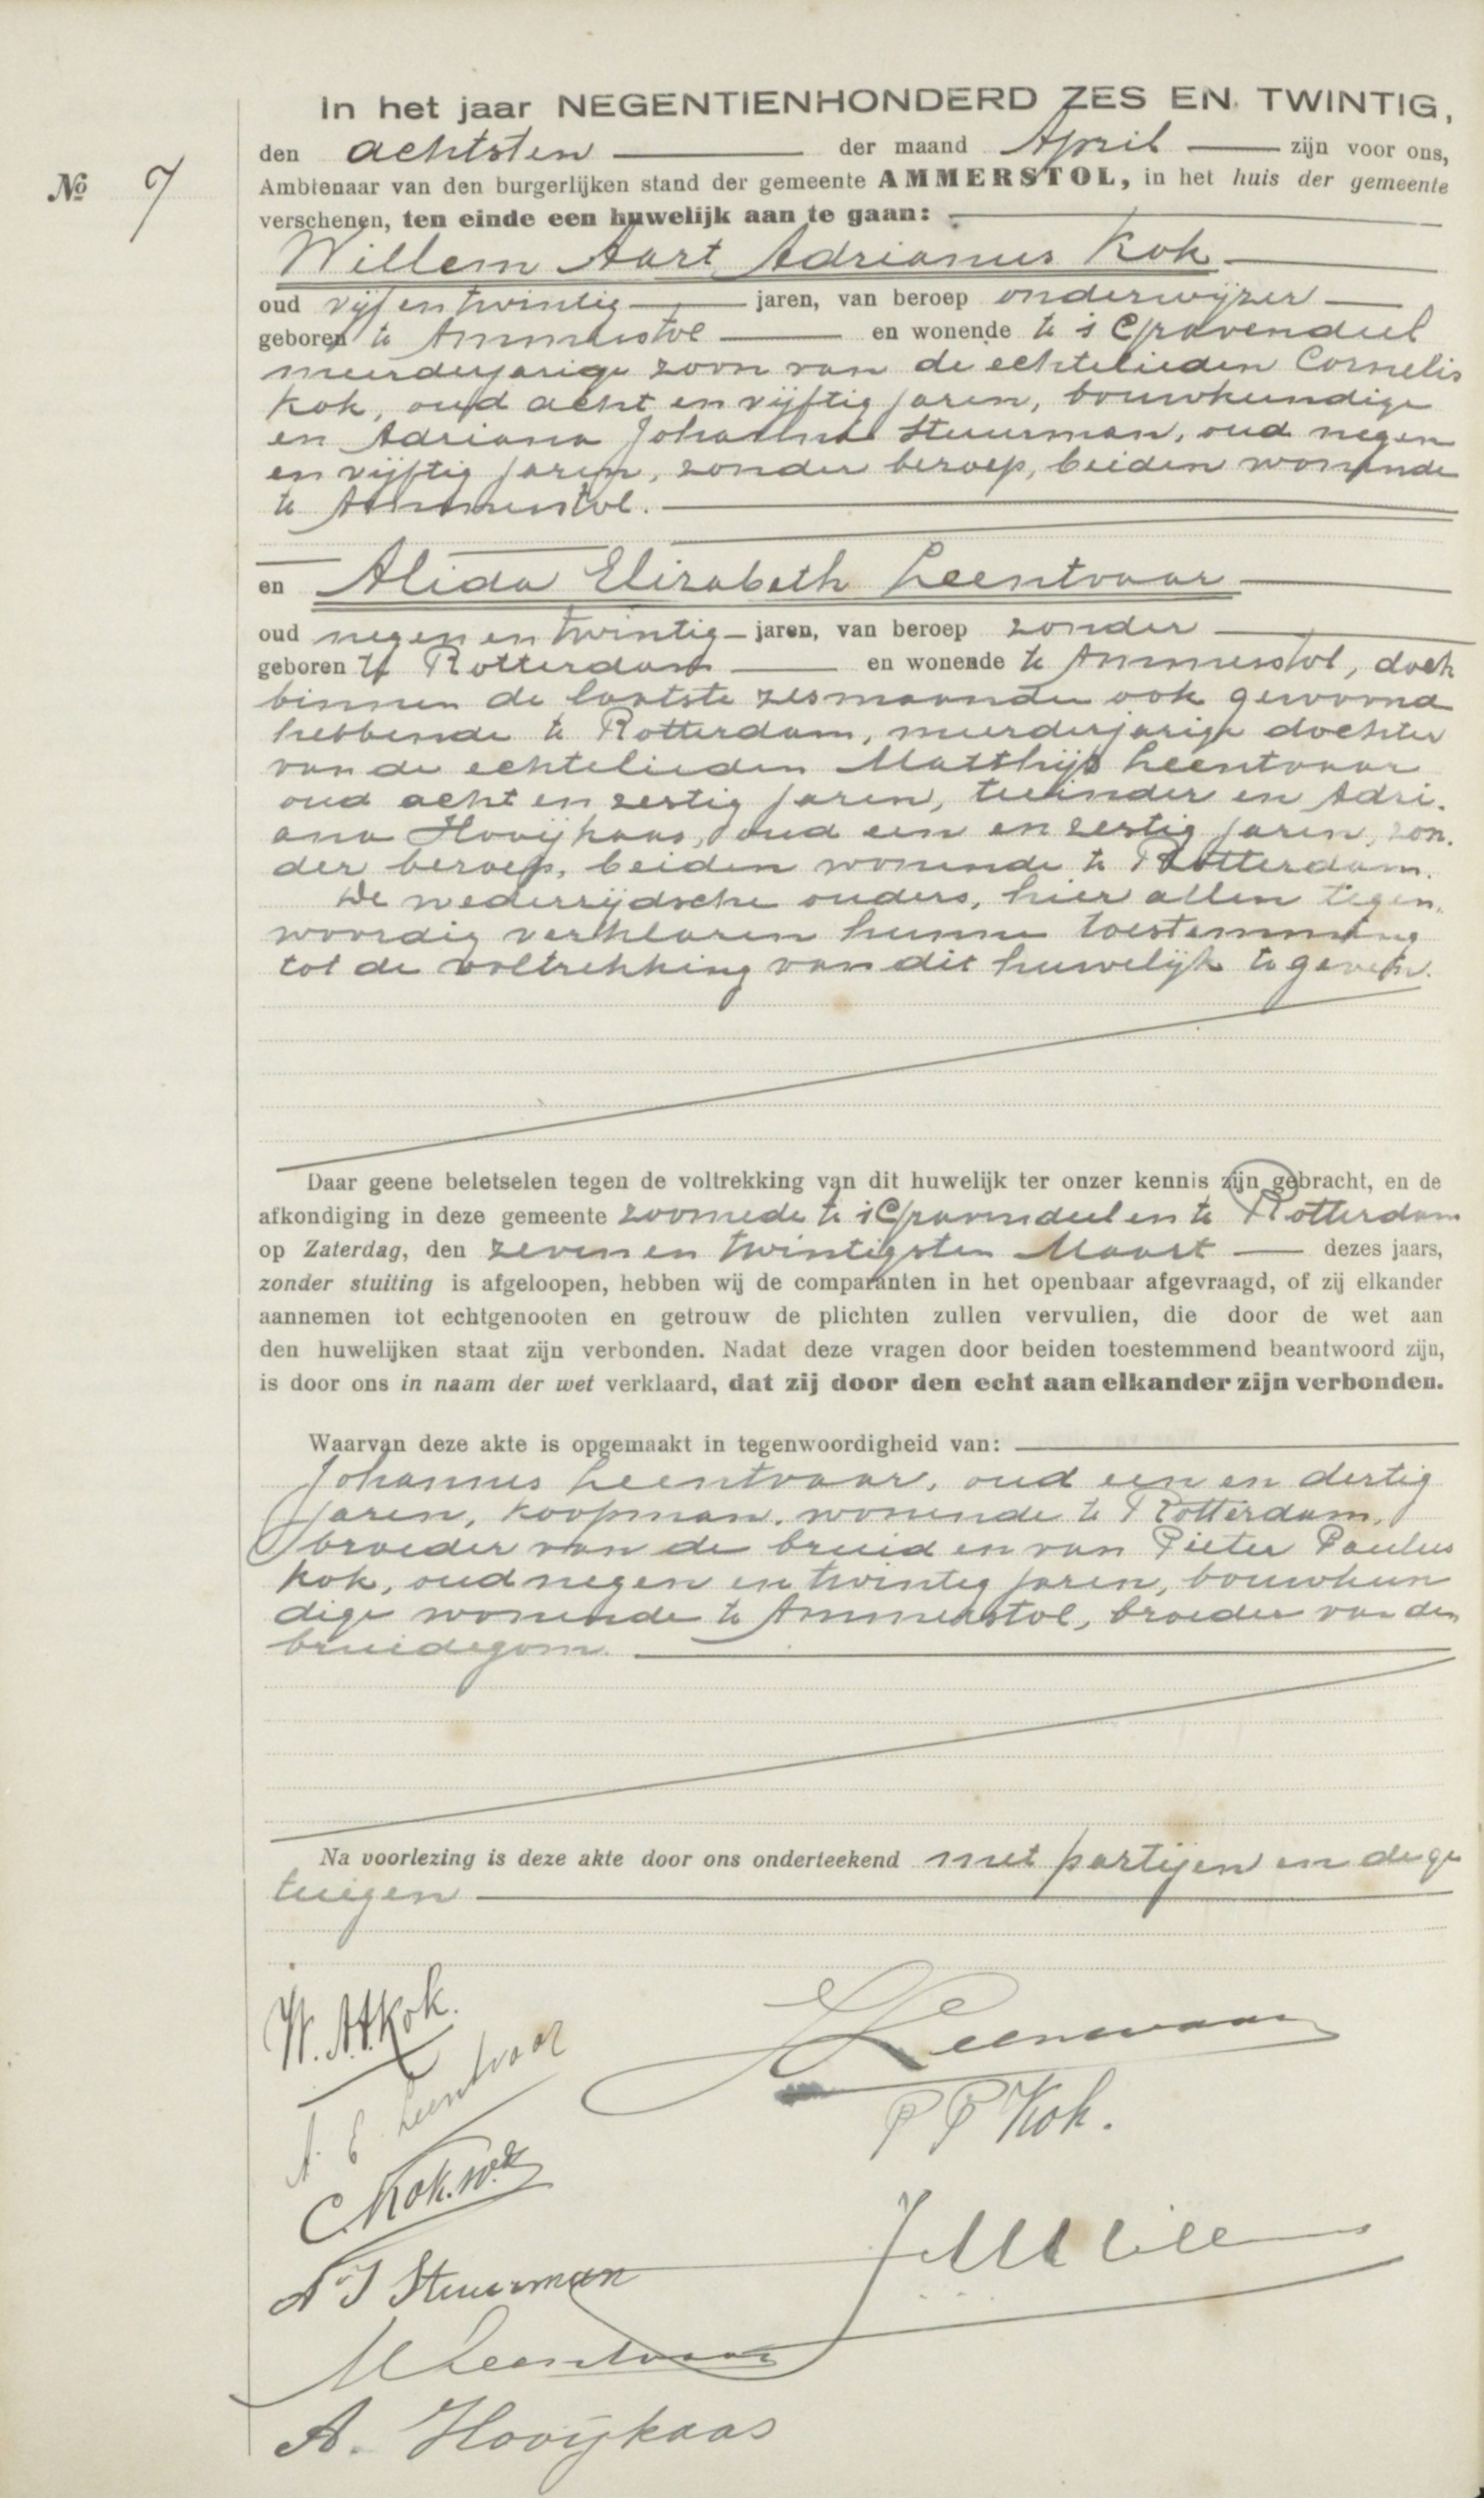 In het jaar NEGENTIENHONDERD ZES EN TWINTIG,
den achtsten der maand April zijn voor ons,
Nº 7
Ambtenaar van den burgerlijken stand der gemeente AMMERSTOL, in het huis der gemeente
verschenen, ten einde een huwelijk aan te gaan:
Willem Aart Adrianus Kok
oud vijf en twintig jaren, van beroep onderwijzer
geboren te Ammerstol en wonende te 's Gravendeel
meerderjarige zoon van de echtelieden Cornelis
Kok, oud acht en vijftig jaren, bouwkundige
en Adriana Johanna Stuurman, oud negen
en vijftig jaren, zonder beroep, beiden wonende
te Ammerstol.
en Alida Elizabeth Leentvaar
oud negen en twintig jaren, van beroep zonder
geboren te Rotterdam en wonende te Ammerstol, doch
binnen de laatste zes maanden ook gewoond
hebbende te Rotterdam, meerderjarige dochter
van de echtelieden Matthijs Leentvaar
oud acht en zestig jaren, tuinder en Adri-
ana Hooijkaas, oud een en zestig jaren, zon-
der beroep, beiden wonende te Rotterdam.
De wederzijdsche ouders, hier allen tegen-
woordig verklaren hunne toestemming
tot de voltrekking van dit huwelijk te geven.
Daar geene beletselen tegen de voltrekking van dit huwelijk ter onzer kennis zijn gebracht, en de
afkondiging in deze gemeente zoomede te 's Gravendeel en te Rotterdam
op Zaterdag, den zeven en twintigsten Maart dezes jaars,
zonder stuiting is afgeloopen, hebben wij de comparanten in het openbaar afgevraagd, of zij elkander
aannemen tot echtgenooten en getrouw de plichten zullen vervullen, die door de wet aan
den huwelijken staat zijn verbonden. Nadat deze vragen door beiden toestemmend beantwoord zijn,
is door ons in naam der wet verklaard, dat zij door den echt aan elkander zijn verbonden.
Waarvan deze akte is opgemaakt in tegenwoordigheid van:
Johannes Leentvaar, oud een en dertig
jaren, koopman, wonende te Rotterdam,
broeder van de bruid en van Pieter Paulus
Kok, oud negen en twintig jaren, bouwkun
dige wonende te Ammerstol, broeder van den
bruidegom.
Na voorlezing is deze akte door ons onderteekend met partijen en de ge
tuigen
W. A. A. Kok.
J Leentvaar
A. E. Leentvaar
P P Kok.
C. Kok.
A J Stuurman
M Leentvaar
A. Hooijkaas